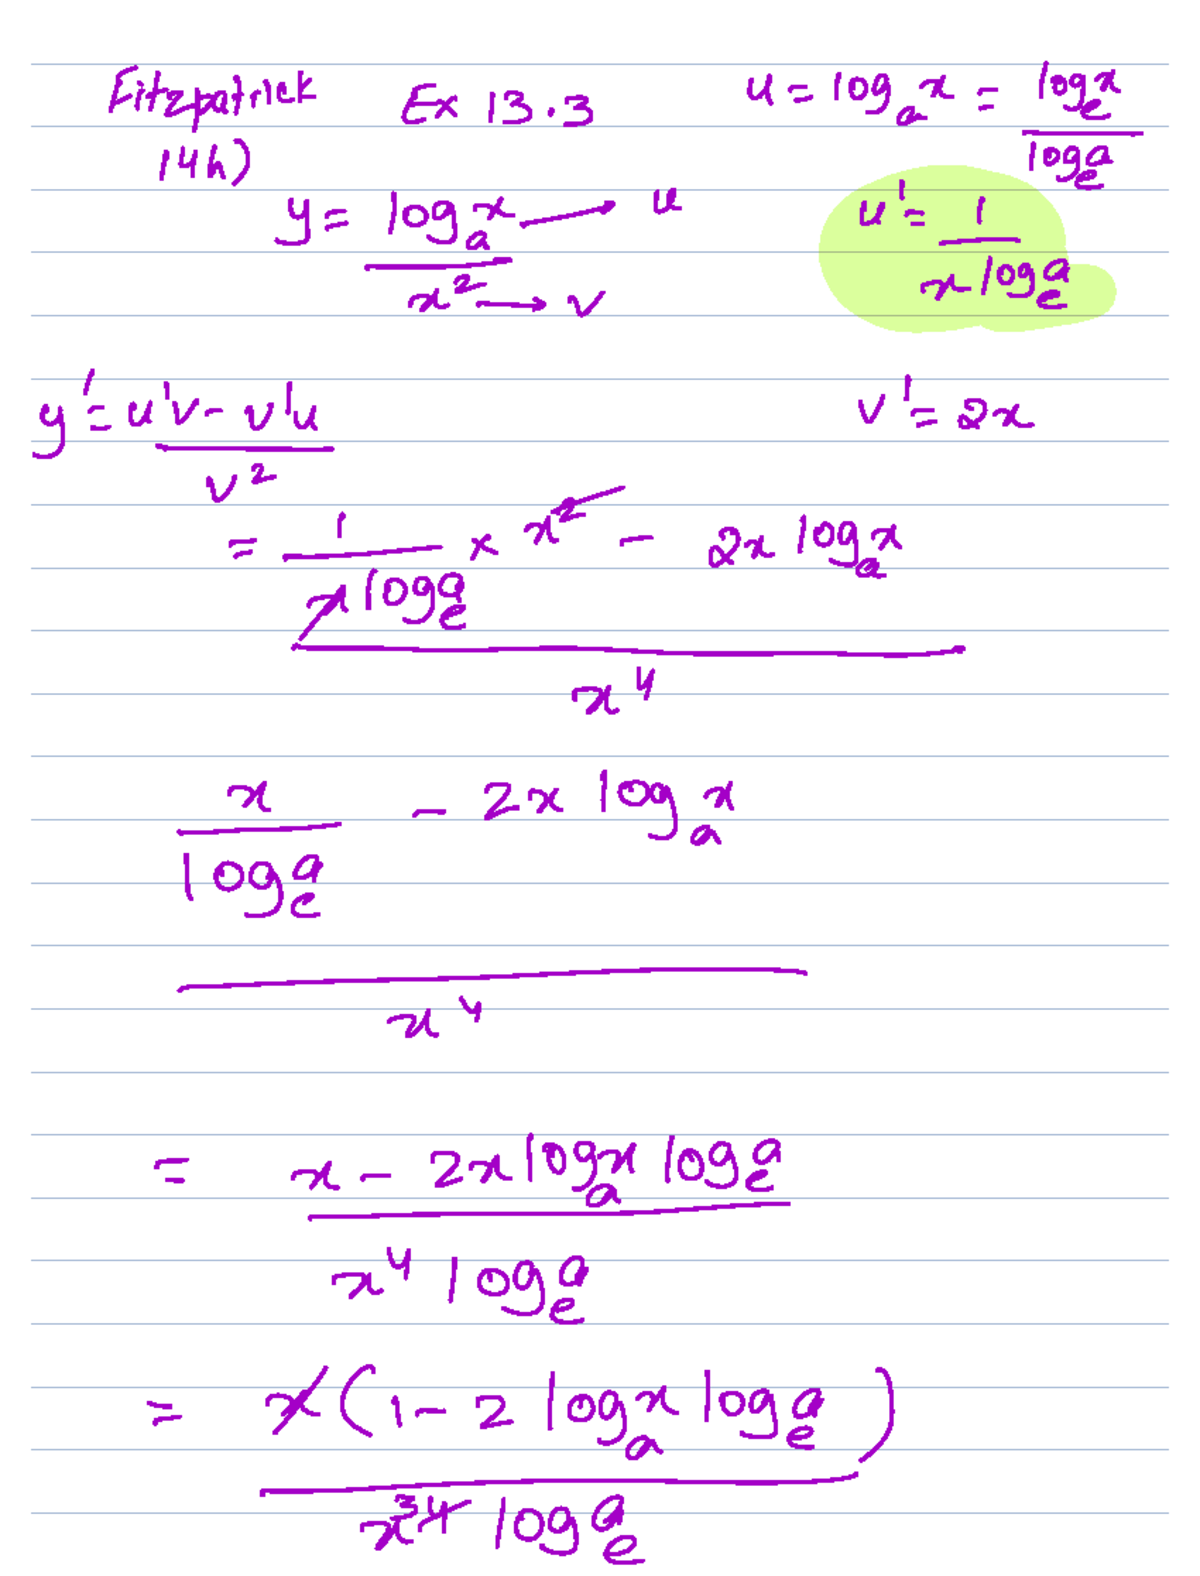 Fitzpatrick Ex 13.3 u = logₐx = logₑx / logₑa
14h)
y = logₐx / x² → u → v
u' = 1 / x logₑa
y' = u'v - v'u / v²
v' = 2x
= 1 / x logₑa × x² - 2x logₐx
x⁴
x / logₑa - 2x logₐx
x⁴
= x - 2x logₐx logₑa
x⁴ logₑa
= x(1 - 2 logₐx logₑa)
x³⁴ logₑa